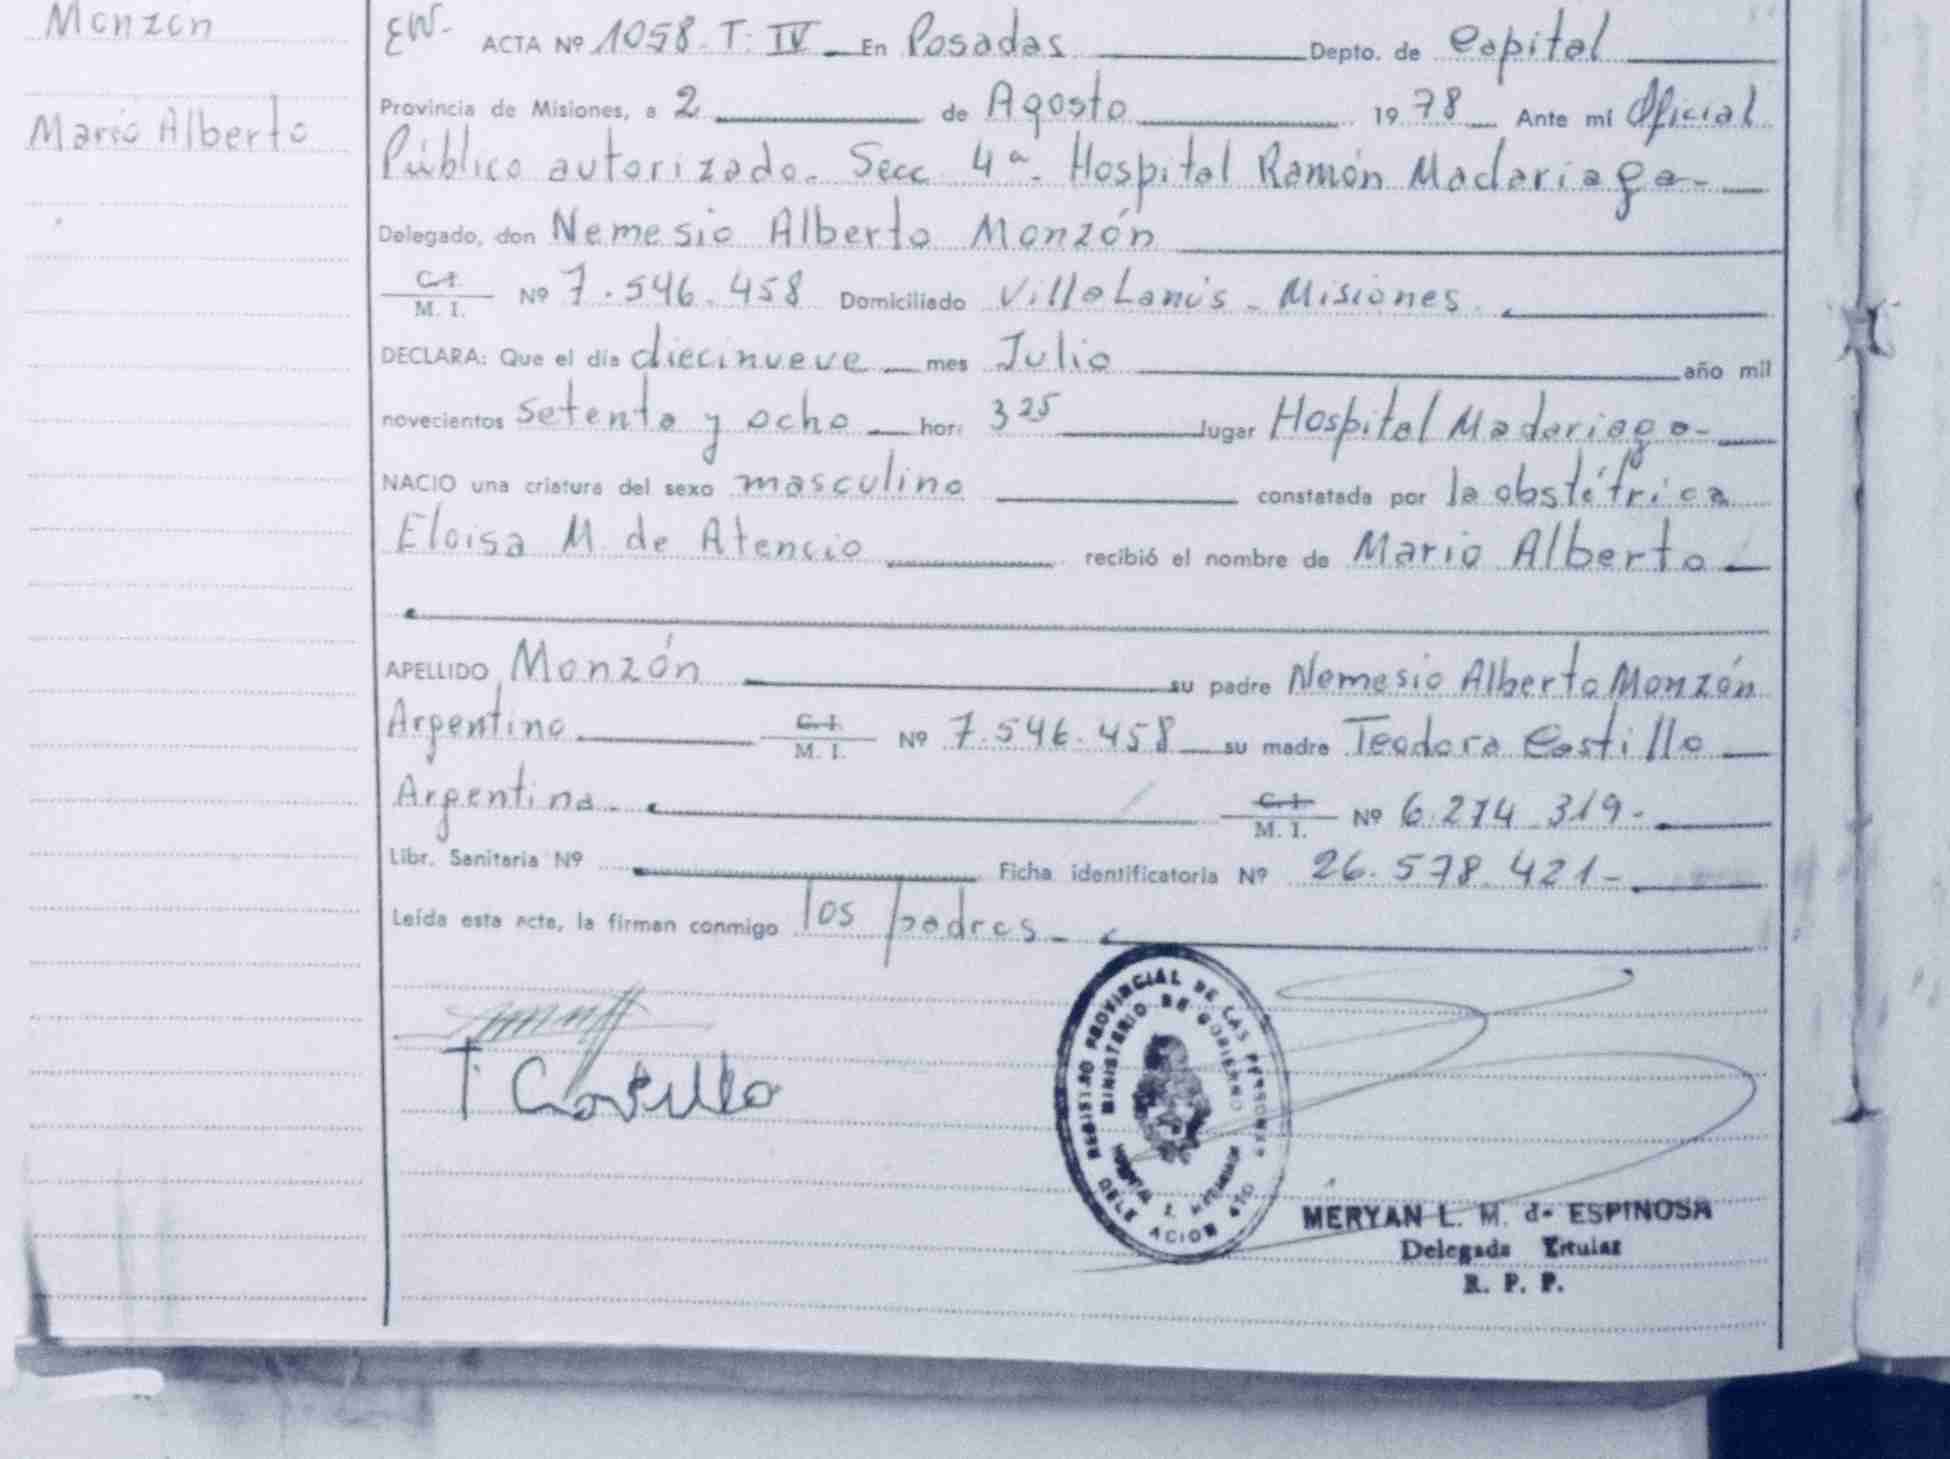 Monzón
Mario Alberto
EW- ACTA Nº 1058. T. IV En Posadas Depto. de Capital
Provincia de Misiones, a 2 de Agosto 19 78 Ante mí Oficial
Público autorizado. Secc 4ª. Hospital Ramón Madariaga-
Delegado, don Nemesio Alberto Monzón
C.I.
M. I. Nº 7.546.458 Domiciliado Villa Lanús - Misiones.
DECLARA: Que el día diecinueve mes Julio año mil
novecientos setenta y ocho hor: 3 25 lugar Hospital Madariaga-
NACIO una criatura del sexo masculino constatada por la obstétrica
Eloisa M. de Atencio recibió el nombre de Mario Alberto
APELLIDO Monzón su padre Nemesio Alberto Monzón
Argentino C.I. M. I. Nº 7.546.458 su madre Teodora Castillo
Argentina. C.I. M. I. Nº 6.274.319-
Libr. Sanitaria Nº Ficha identificatoria Nº 26.578.421-
Leída esta acta, la firman conmigo los padres-
T. Castillo
REGISTRO PROVINCIAL DE LAS PERSONAS
MINISTERIO DE GOBIERNO
MERYAN L. M. de ESPINOSA
Delegada Titular
R. P. P.